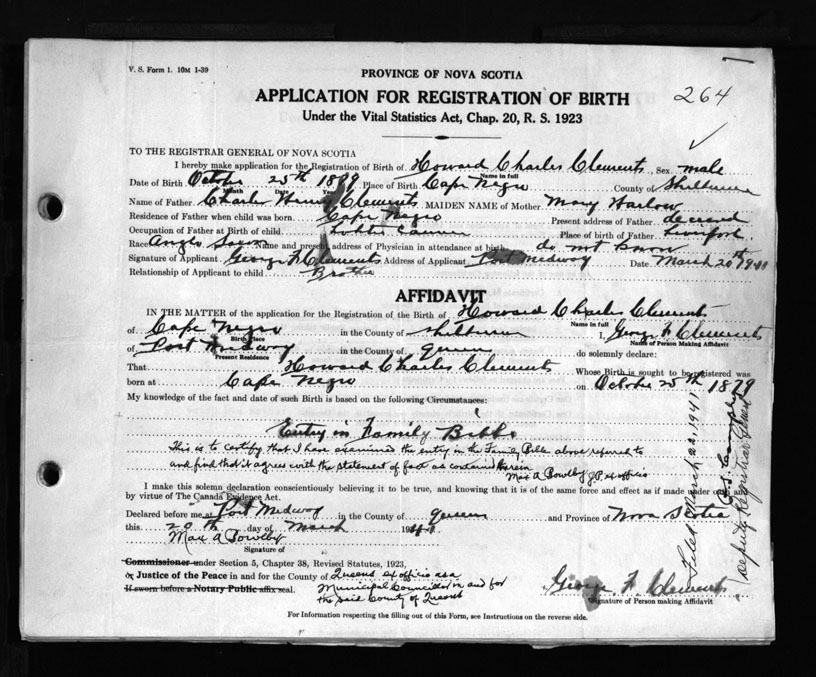 V. S. Form 1. 10M 1-39
PROVINCE OF NOVA SCOTIA
APPLICATION FOR REGISTRATION OF BIRTH
264
Under the Vital Statistics Act, Chap. 20, R. S. 1923
TO THE REGISTRAR GENERAL OF NOVA SCOTIA
I hereby make application for the Registration of Birth of Howard Charles Clements, Sex male
Name in full
Date of Birth October 25th Place of Birth Cape Negro County of Shelburne
Month Date
Name of Father Charles Henry Clements MAIDEN NAME of Mother Mary Harlow
Residence of Father when child was born Cape Negro Present address of Father deceased
Occupation of Father at Birth of child Lobster Canner Place of birth of Father
Race Anglo Saxon Name and present address of Physician in attendance at birth do not know
Signature of Applicant George F. Clements Address of Applicant Port Medway Date March 20th
Relationship of Applicant to child Brother
AFFIDAVIT
IN THE MATTER of the application for the Registration of the Birth of Howard Charles Clements
Name in full
of Cape Negro in the County of Shelburne I, George F. Clements
Birth Place
Name of Person Making Affidavit
of Port Medway in the County of Queens do solemnly declare:
Present Residence
That Howard Charles Clements Whose Birth is sought to be registered was
born at Cape Negro on October 25th 1879
My knowledge of the fact and date of such Birth is based on the following Circumstances:
Entry in Family Bible
This is to certify that I have examined the entry in the Family Bible above referred to
and find that it agrees with the statement of fact as contained herein
Max A Bowlby J.P. ex officio
I make this solemn declaration conscientiously believing it to be true, and knowing that it is of the same force and effect as if made under oath and
by virtue of The Canada Evidence Act.
Declared before me at Port Medway in the County of Queens and Province of Nova Scotia
this 20th day of March 1941
Max A Bowlby
Signature of
Commissioner under Section 5, Chapter 38, Revised Statutes, 1923,
or Justice of the Peace in and for the County of Queens ex officio as a
If sworn before a Notary Public affix seal. Municipal Councillor in and for
the said County of Queens
George F. Clements
Signature of Person making Affidavit
For Information respecting the filling out of this Form, see Instructions on the reverse side.
Filed March 22, 1941
Deputy Registrar General